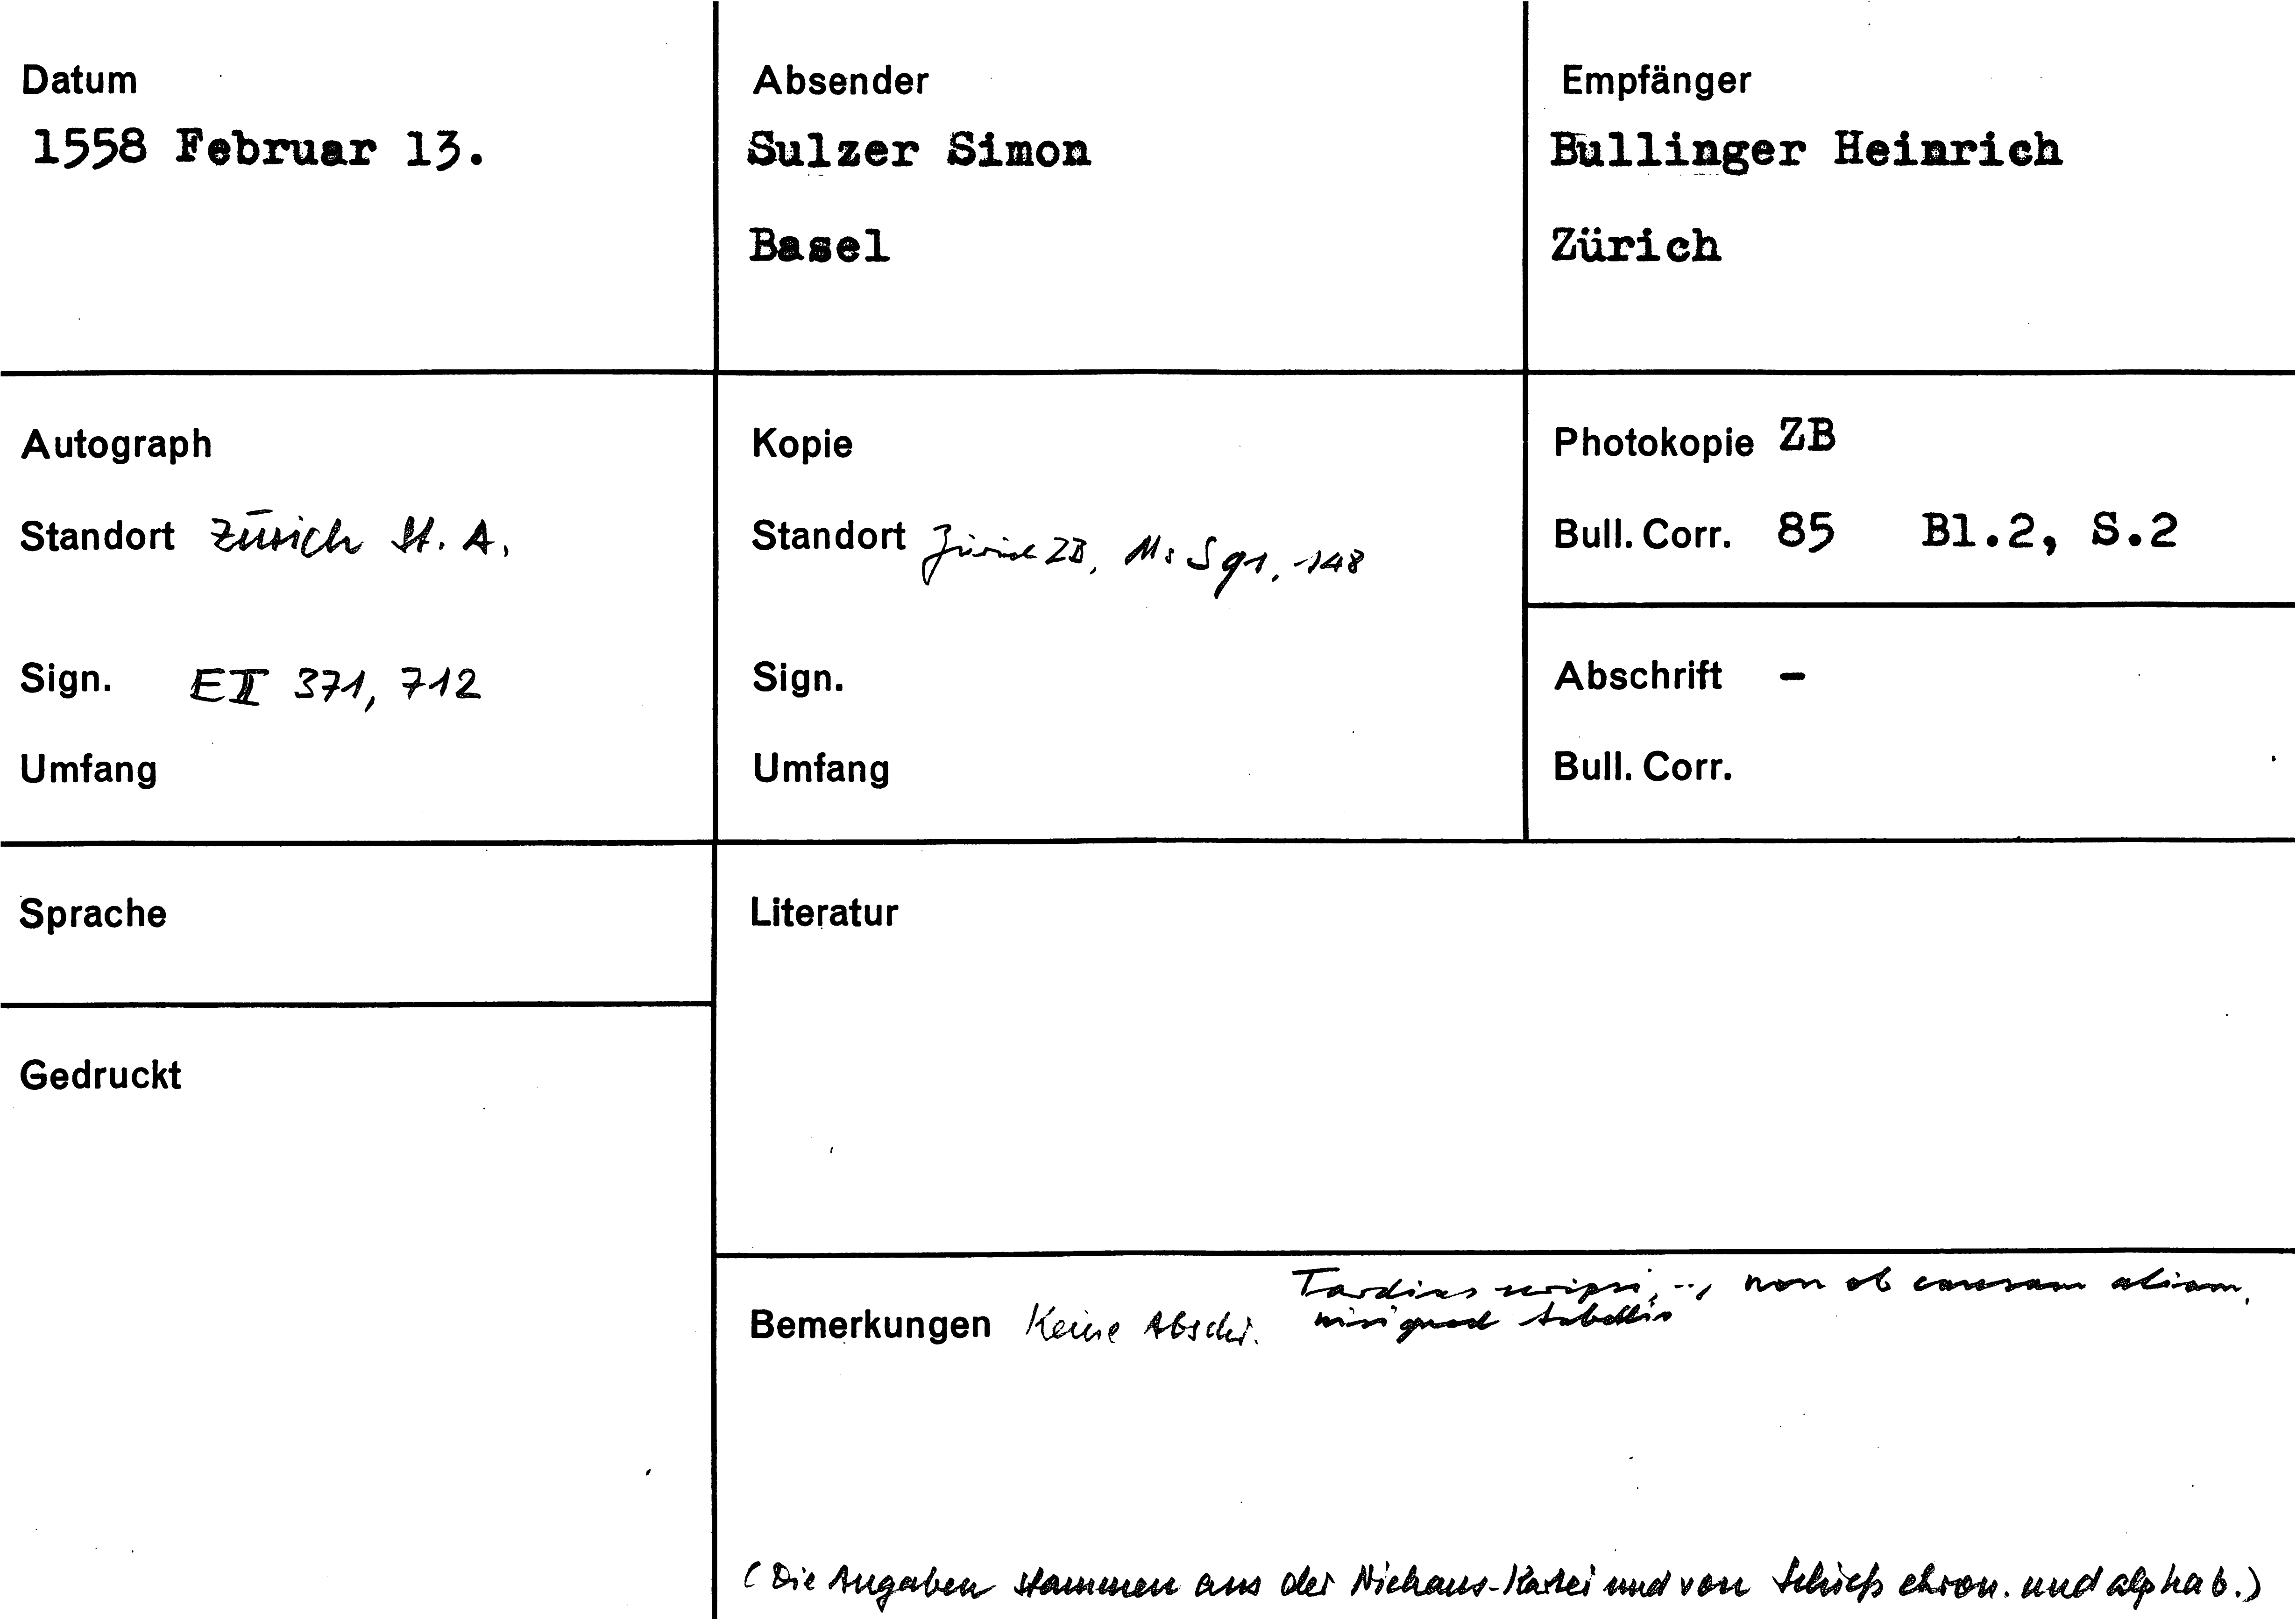 Datum
1558 Februar 13.
Absender
Sulzer Simon
Basel
Empfänger
Bullinger Heinrich
Zürich
Autograph
Standort Zürich St. A.
Sign. E II 371, 712
Umfang
Kopie
Standort Zürich ZB, Ms S 91, 148
Sign.
Umfang
Photokopie ZB
Bull. Corr. 85 Bl.2, S.2
Abschrift -
Bull. Corr.
Sprache
Literatur
Gedruckt
Tardius scripsi, .., non ob causam aliam,
Bemerkungen Keine Abschr. nisi quod
(Die Angaben stammen aus der Niehaus-Kartei und von Schieß chron. und alphab.)